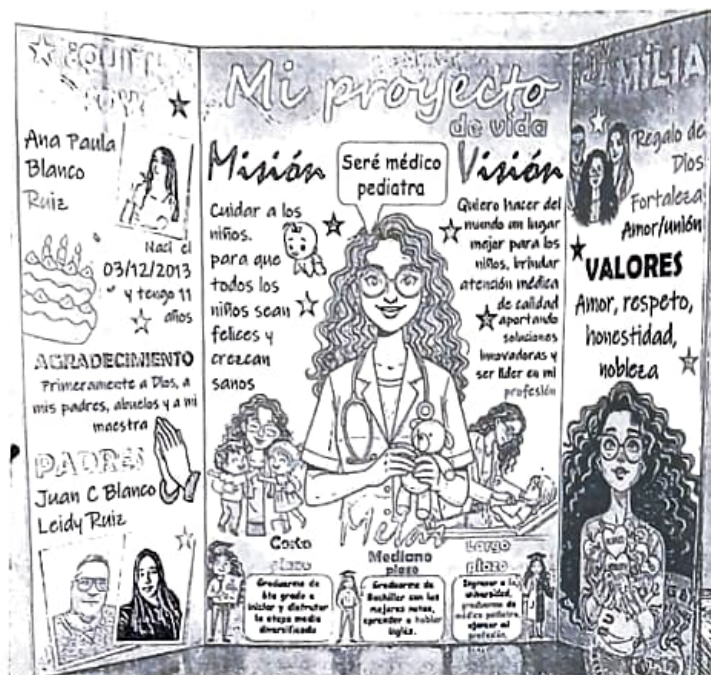 Ana Paula
Blanco
Ruiz
Nací el
03/12/2013
y tengo 11
años
AGRADECIMIENTO
Primeramente a Dios, a
mis padres, abuelos y a mi
maestra
PADRES
Juan C Blanco
Leidy Ruiz
Mi proyecto
de vida
Misión
Cuidar a los
niños.
para que
todos los
niños sean
felices y
crezcan
sanos
Seré médico
pediatra
Visión
Quiero hacer del
mundo un lugar
mejor para los
niños, brindar
atención médica
de calidad
aportando
soluciones
innovadoras y
ser líder en mi
profesión
Metas
Corto
plazo
Graduarme de
6to grado e
iniciar y disfrutar
la etapa media
diversificada
Mediano
plazo
Graduarme de
Bachiller con las
mejores notas,
aprender a hablar
inglés.
Largo
plazo
Ingresar a la
universidad,
graduarme de
médico pediatra,
ejercer mi
profesión.
FAMILIA
Regalo de
Dios
Fortaleza
Amor/unión
VALORES
Amor, respeto,
honestidad,
nobleza